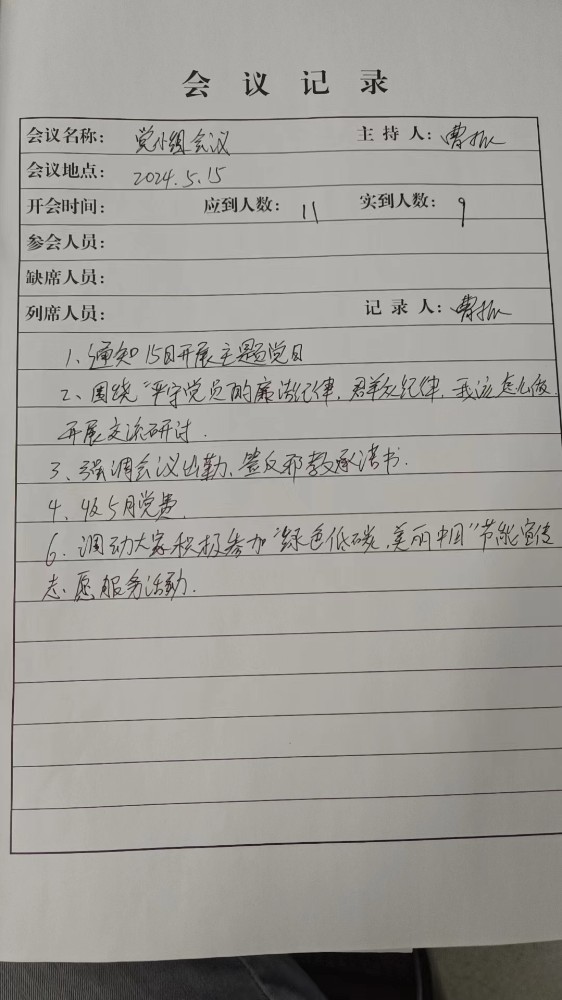 会议记录
会议名称： 党小组会议 主持人： 曹
会议地点： 2024.5.15
开会时间： 应到人数： 11 实到人数： 9
参会人员：
缺席人员：
列席人员： 记录人： 曹
1、通知15日开展主题党日
2、围绕“严守党员的廉洁纪律、群众纪律，我该怎么做
开展交流研讨．
3、强调会议出勤、签反邪教承诺书．
4、收5月党费．
6、调动大家积极参加“绿色低碳，美丽中国”节能宣传
志愿服务活动．